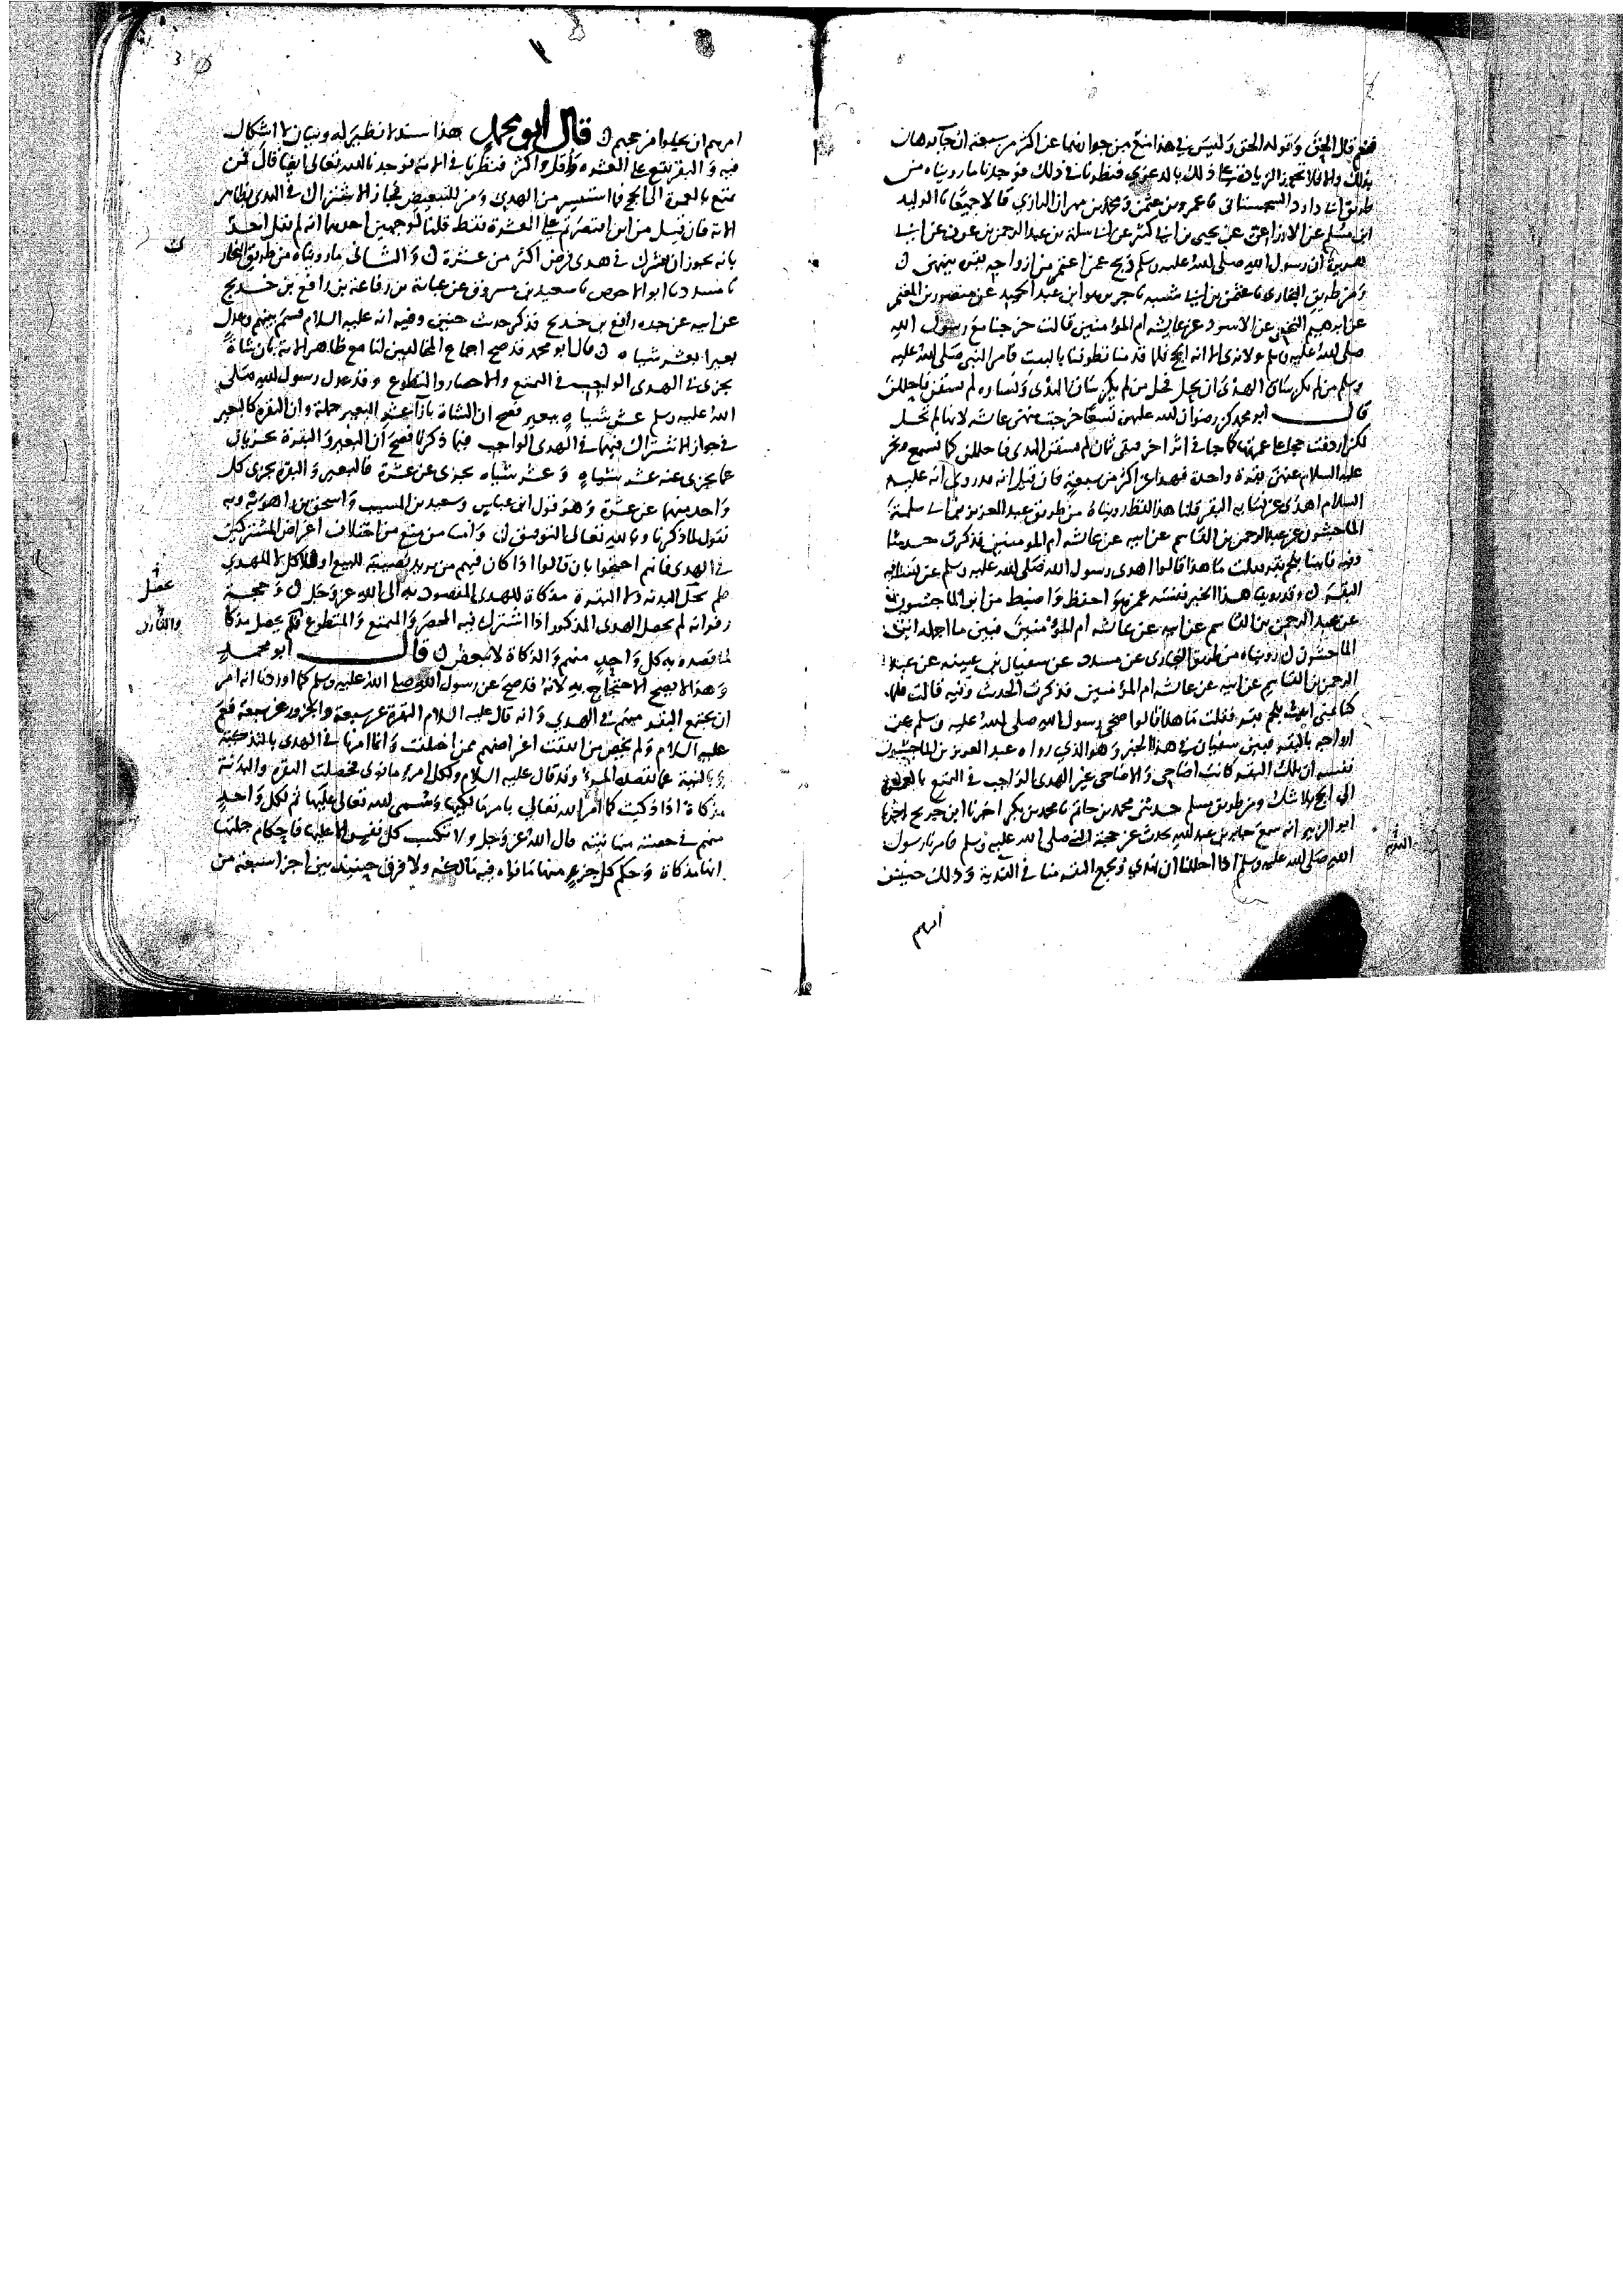 فنعم قال الحق وقوله الحق وليس في هذا منع من جوازهما عن اكثر من سبعة ان جآ برهان
بذلك والا فلا تجوز الزيادة على ذلك بالدعوى فنظرنا في ذلك فوجدنا ما رويناه من
طريق ابي داود السجستاني نا عمرو بن عثمن ومحمد بن مهران الرازي قالا جميعا نا الوليد
ابن مسلم عن الاوزاعي عن يحيى بن ابي كثير عن ابي سلمة بن عبد الرحمن بن عوف عن ابي
هريرة ان رسول الله صلى الله عليه وسلم ذبح عمن اعتمر من ازواجه بقرة بينهن
ومن طريق البخاري نا عثمن بن ابي شيبه نا جرير هو ابن عبد الحميد عن منصور بن المعتمر
عن ابرهيم النخعي عن الاسود عن عايشه ام المؤمنين قالت خرجنا مع رسول الله
صلى الله عليه وسلم ولا نرى الا انه الحج فلما قدمنا تطوفنا بالبيت فامر النبي صلى الله عليه
وسلم من لم يكن ساق الهدى ان يحل فحل من لم يكن ساق الهدى ونساوه لم يسقن فاحللن
قال ابو محمد كن رضوان الله عليهن تسعا خرجت منهن عائشه لانها لم تحل
لكن اردفت حجا على عمرتها كما جا في اثر اخر فبقي ثمان لم يسقن الهدى فاحللن كما تسمع ونحر
عليه السلام عنهن بقرة واحدة فهذا عن اكثر من سبعة فان قيل انه قد روي انه عليه
السلام اهدى عن نسايه البقر قلنا هذا لفظ رويناه من طريق عبد العزيز بن ابي سلمة
الماجشون عن عبد الرحمن بن القاسم عن ابيه عن عائشه ام المومنين فذكرت حديثا
وفيه فاتينا بلحم بقر فقلت ما هذا قالوا اهدى رسول الله صلى الله عليه وسلم عن نسائه
البقر وقد روينا هذا الخبر نفسه عمن هو احفظ واضبط من ابن الماجشون
عن عبد الرحمن بن القاسم عن ابيه عن عائشه ام المؤمنين فبين ما اجمله ابن
الماجشون رويناه من طريق البخاري عن مسدد عن سفيان بن عيينه عن عبد
الرحمن بن القاسم عن ابيه عن عائشه ام المؤمنين فذكرت الحديث وفيه قالت فلما
كنا بمنى اتيت بلحم بقر فقلت ما هذا قالوا ضحى رسول الله صلى الله عليه وسلم عن
ازواجه بالبقر فبين سفيان في هذا الخبر وهو الذي رواه عبد العزيز بن الماجشون
نفسه ان تلك البقر كانت اضاحي والاضاحي غير الهدى الواجب في التمتع بالعمرة
الى الحج بلا شك ومن طريق مسلم حدثني محمد بن حاتم نا محمد بن بكر اخرنا ابن جريج اخبرنا
ابو الزبير انه سمع جابر بن عبد الله يحدث عن حجة النبي صلى الله عليه وسلم فامرنا رسول
الله صلى الله عليه وسلم اذا احللنا ان نهدي ويجمع النفر منا في الهدية وذلك حينئذ
امرهم
امرهم ان يحلوا من حجهم قال ابو محمد هذا سند لا نظير له وبيان لا اشكال
فيه والنفر يقع على العشره واقل واكثر فنظرنا في الآية فوجدنا الله تعالى انما قال فمن
تمتع بالعمرة الى الحج فما استيسر من الهدى ومن للتبعيض فجاز الاشتراك في الهدى بظاهر
الآية فان قيل من اين اقتصرتم على العشرة فقط قلنا لوجهين احدهما انه لم يقل احد
بانه يجوز ان يشترك في هدى فرض اكثر من عشرة والثاني ما رويناه من طريق البخاري
نا مسدد نا ابو الاحوص نا سعيد بن مسروق عن عباية بن رفاعة بن رافع بن خديج
عن ابيه عن جده رافع بن خديج فذكر حديث حنين وفيه انه عليه السلام قسم بينهم وعدل
بعيرا بعشر شياه قال ابو محمد قد صح اجماع المخالفين لنا مع ظاهر الآية بان شاة
تجزى في الهدى الواجب في التمتع والاحصار والتطوع وقد عدل رسول الله صلى
الله عليه وسلم عشر شياه ببعير فصح ان الشاة بازآ عشر البعير جملة وان البقرة كالبعير
في جواز الاشتراك فيهما في الهدى الواجب فيما ذكرنا فصح ان البعير والبقرة يجزيان
عما يجزى عنه عشر شياه وعشر شياه تجزى عن عشرة فالبعير والبقرة يجزى كل
واحد منهما عن عشرة وهو قول ابن عباس وسعيد بن المسيب واسحق بن راهويه وبه
نقول لما ذكرنا وبالله تعالى التوفيق واما من منع من اختلاف اغراض المشتركين
في الهدى فانهم احتجوا بان قالوا اذا كان فيهم من يريد نصيبه للبيع او للاكل لا للهدي
فلم تحل البدنه ولا البقرة مذكاة للهدى المقصود به الى الله عز وجل وحجة
زفر انه لم يحصل الهدى المذكور اذا اشترك فيه المحصر والمتمتع والمتطوع فلم يحصل مذكا
لما قصده به كل واحد منهم والذكاة لا تتبعض قال ابو محمد
وهذا لا يصح الاحتجاج به لانه قد صح عن رسول الله صلى الله عليه وسلم كما اوردنا انه امر
ان يجتمع النفر منهم في الهدي وانه قال عليه السلام البقرة عن سبعة والجزور عن سبعة فعم
عليه السلام ولم يخص من اتفقت اغراضهم ممن اختلفت وانما امرنا في الهدى بالتذكية
وبالنية عما نقصده وقد قال عليه السلام ولكل امرء ما نوى فحصلت البقرة والبدنة
مذكاة اذا ذكيت كما امر الله تعالى بامر مالكيها وسمى الله تعالى عليها ثم لكل واحد
منهم في حصته منها نيته قال الله عز وجل ولا تكسب كل نفس الا عليها فاحكام جملتها
انها مذكاة وحكم كل جزء منها ما نواه فيه مالكه ولا فرق حينئذ بين اجزا سبعة من